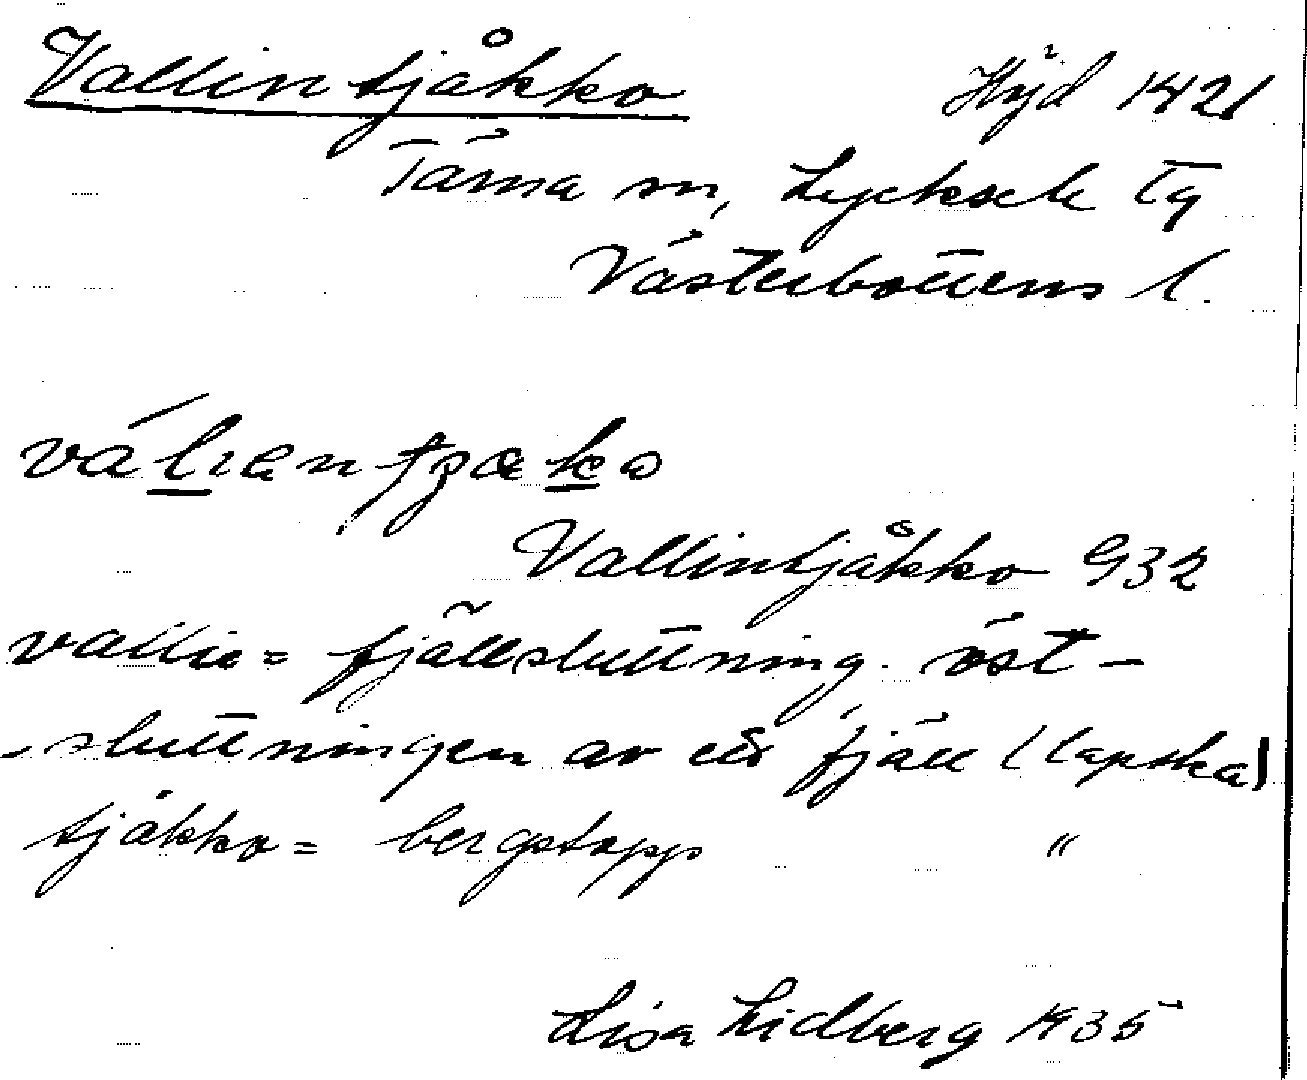 Vallintjåkko Höjd 1421
Tärna sn, Lycksele tg
Västerbottens l.
Vallintjåkko 932
vallie = fjällsluttning. öst-
-sluttningen av ett fjäll (lapska)
tjåkko = bergstopp "
Lisa Lidberg 1935